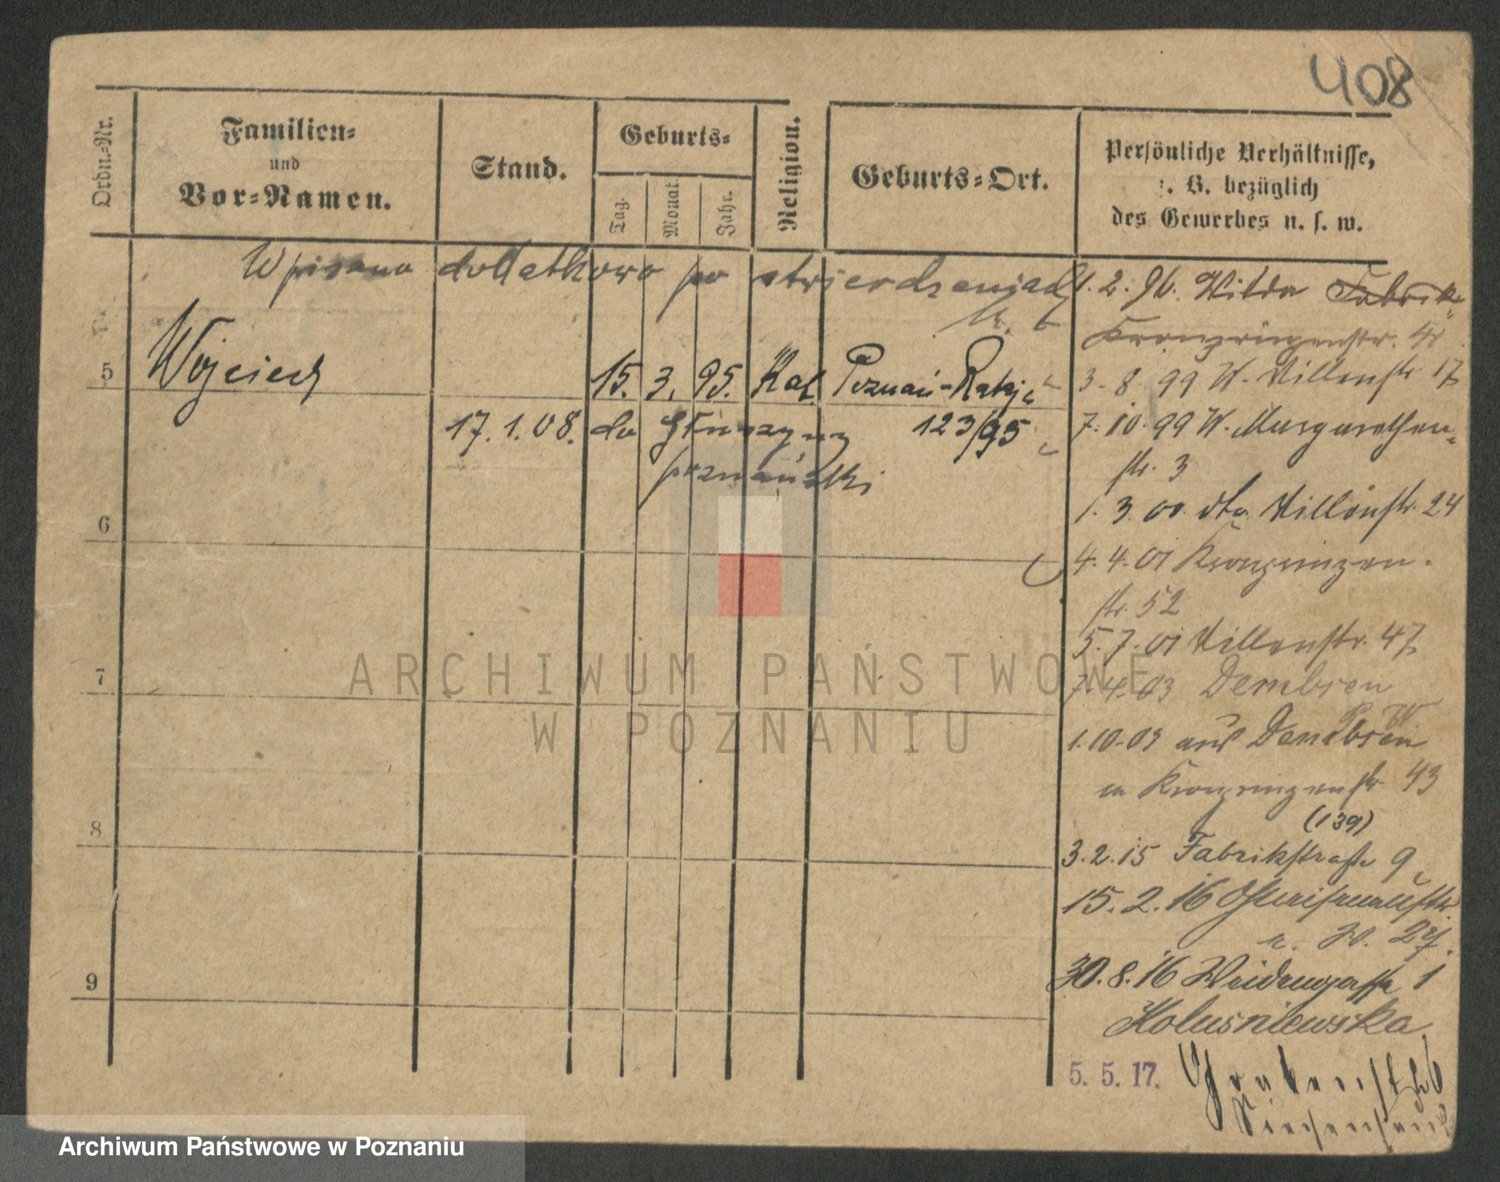 408
Ordn.-Nr.
Familien-
und
Vor-Namen.
Stand.
Geburts-
Tag.
Monat
Jahr.
Religion.
Geburts-Ort.
Persönliche Verhältnisse,
z. B. bezüglich
des Gewerbes u. s. w.
Wpisano dodatkowo po
5
Wojciech
15. 3. 95. Kat. Poznań-Rataje
17. 1. 08. do Głuszyny 123/95
poznański
6
7
8
9
1. 2. 96. Wilda Fabrik-
Kronprinzenstr.
3. 8. 99 W. Villenstr. 17
7. 10. 99 W. Margarethen-
str. 3
1. 3. 00. dto. Villenstr. 24
4. 4. 01 Kronprinzen-
str. 52
5. 7. 01 Villenstr. 47
7. 4. 03 Dembsen
1. 10. 03 aus Dembsen
Kronprinzenstr. 43
(139)
3. 2. 15 Fabrikstraße 9
15. 2. 16
30. 8. 16 Weidengasse 1
Kolusniewska
5. 5. 17. Grabenst
ARCHIWUM PAŃSTWOWE
W POZNANIU
Archiwum Państwowe w Poznaniu